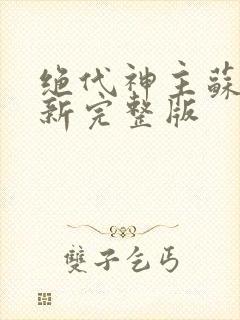 绝代神主蘇
新完整版
雙子乞丐